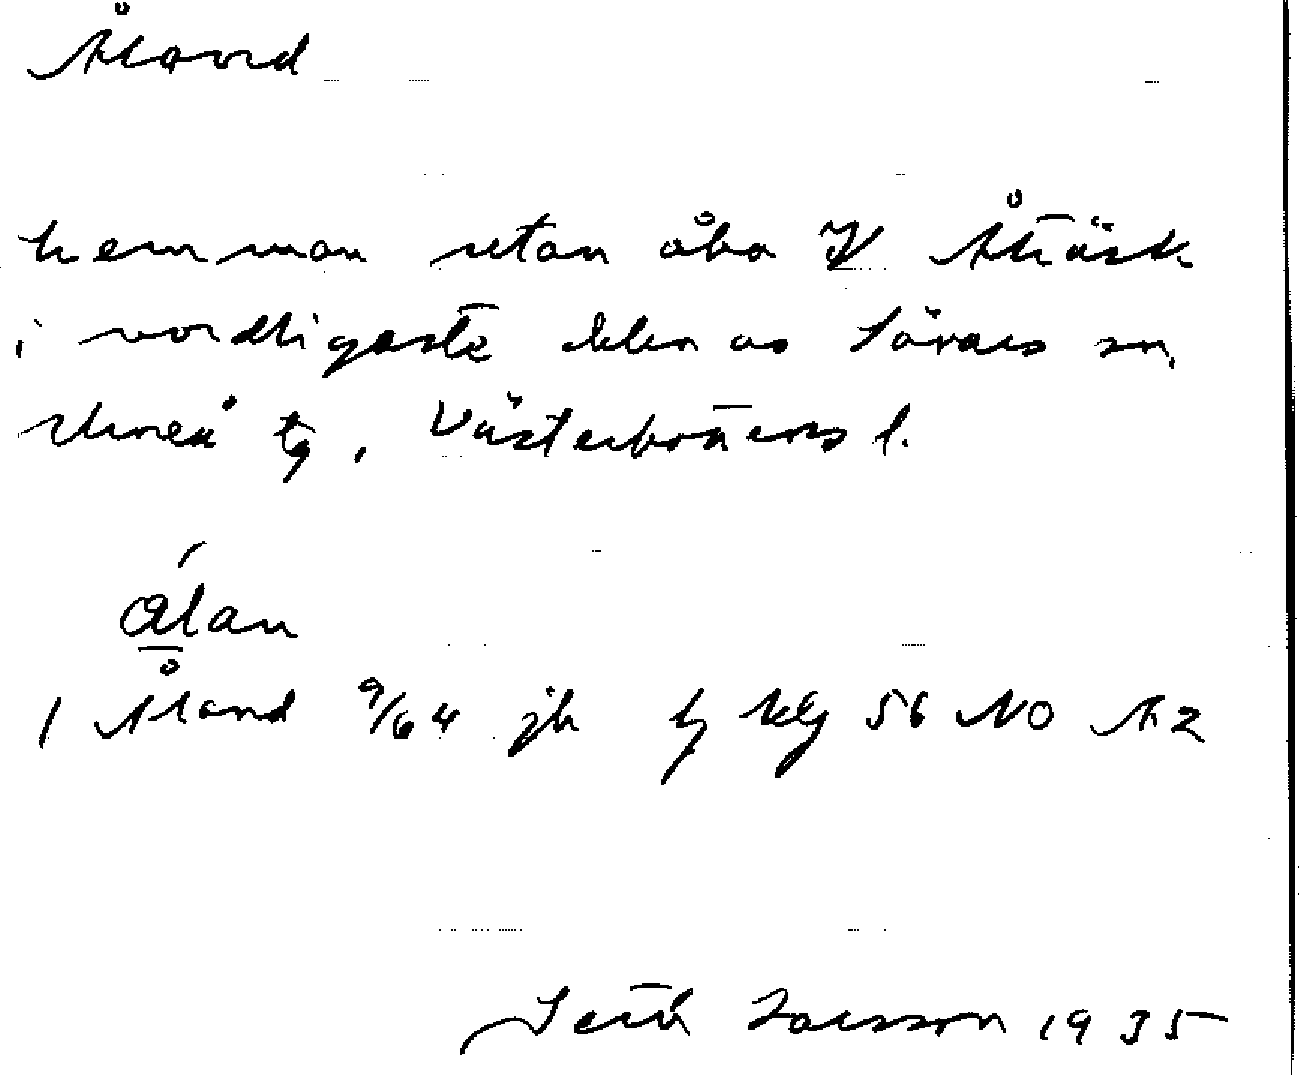 Åland
hemman utan åbo V Åträsk
i nordligaste delen av Sävars sn,
Umeå tg, Västerbottens l.
ålan
1 Åland 9/64 jb NO Å2
Seth Larsson 1935